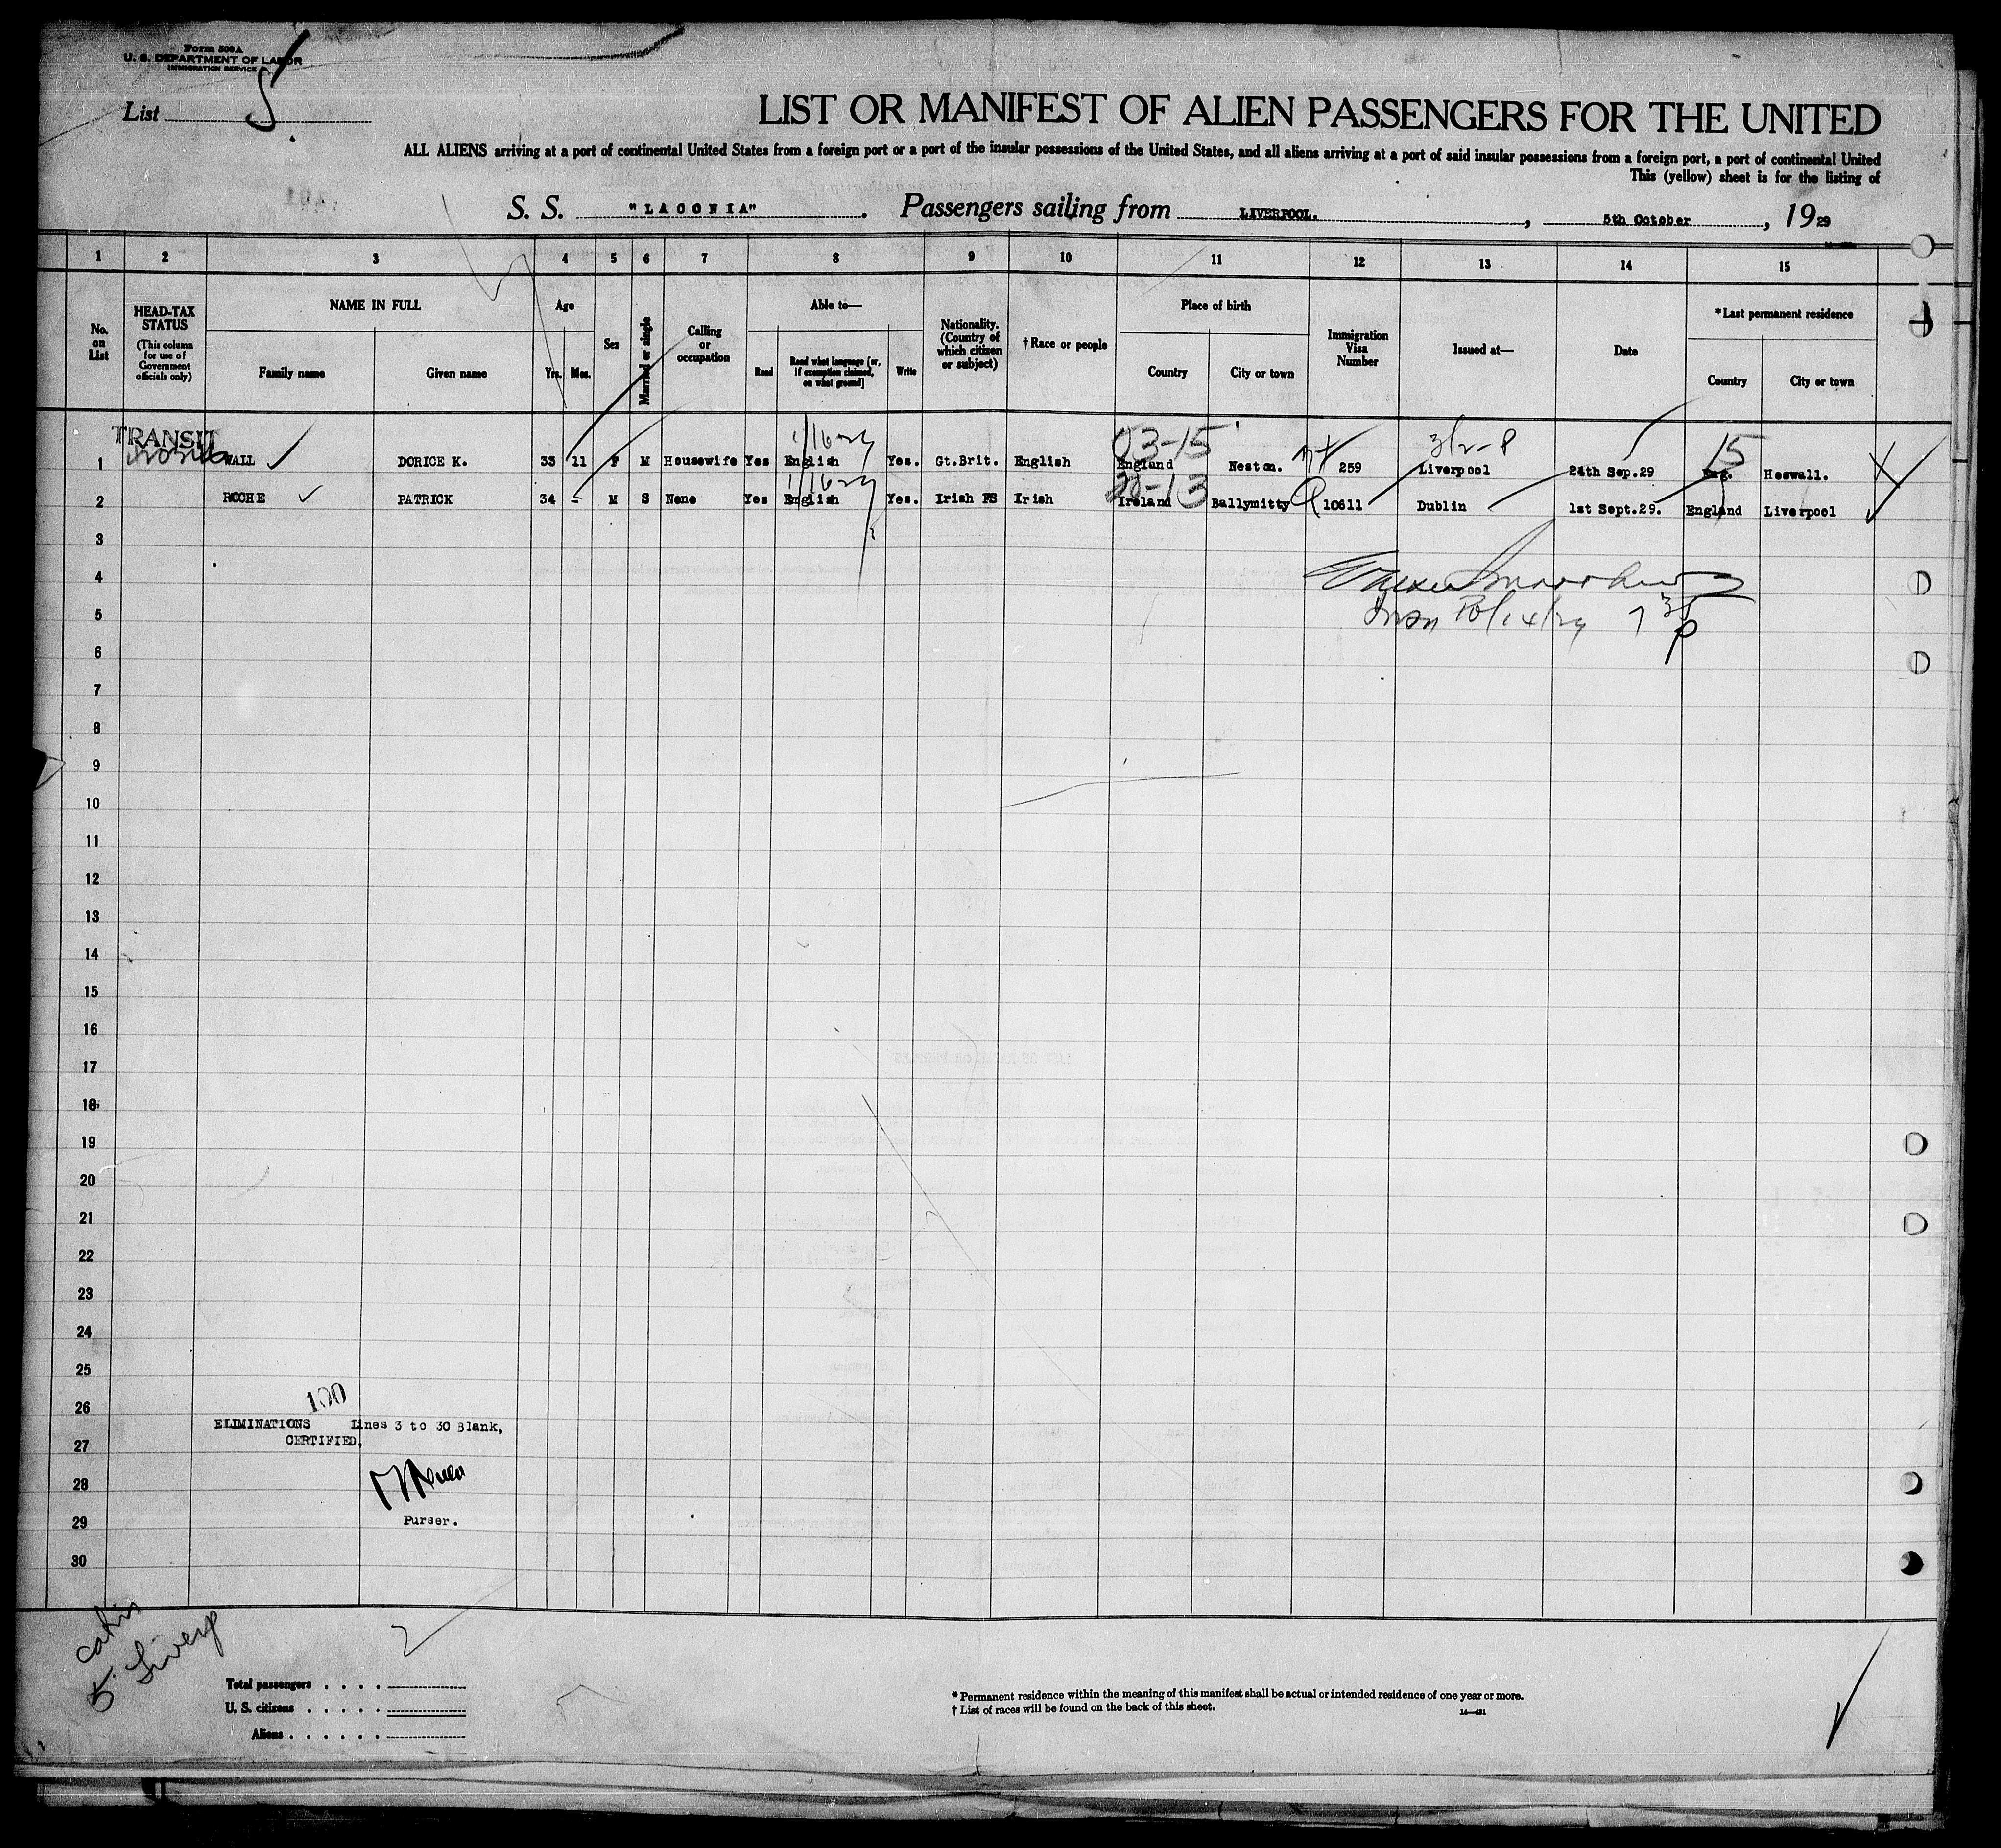 Form 500A
U. S. DEPARTMENT OF LABOR
IMMIGRATION SERVICE
List 5
LIST OR MANIFEST OF ALIEN PASSENGERS FOR THE UNITED
ALL ALIENS arriving at a port of continental United States from a foreign port or a port of the insular possessions of the United States, and all aliens arriving at a port of said insular possessions from a foreign port, a port of continental United
This (yellow) sheet is for the listing of
S. S. "LACONIA". Passengers sailing from LIVERPOOL., 5th October, 1929
1 2 3 4 5 6 7 8 9 10 11 12 13 14 15
No. on List
HEAD-TAX STATUS (This column for use of Government officials only)
NAME IN FULL
Family name Given name
Age
Yrs. Mos.
Sex
Married or single
Calling or occupation
Able to—
Read Read what language [or, if exemption claimed, on what ground] Write
Nationality. (Country of which citizen or subject)
†Race or people
Place of birth
Country City or town
Immigration Visa Number
Issued at—
Date
*Last permanent residence
Country City or town
TRANSIT 1/16-29 03-15 3/2-P 15
1 WALL DORICE K. 33 11 F M Housewife Yes English Yes. Gt.Brit. English England Neston. 259 Liverpool 24th Sep.29 Eng. Heswall.
1/16-29 20-13
2 ROCHE PATRICK 34 - M S None Yes English Yes. Irish FS Irish Ireland Ballymitty Q 10611 Dublin 1st Sept.29. England Liverpool
3
4
5 10/14/29 7 35 P
6
7
8
9
10
11
12
13
14
15
16
17
18
19
20
21
22
23
24
25
26
27
28
29
30
100
ELIMINATIONS Lines 3 to 30 Blank,
CERTIFIED.
Purser.
cabin
5. Liverp
2
Total passengers
U. S. citizens
Aliens
* Permanent residence within the meaning of this manifest shall be actual or intended residence of one year or more.
† List of races will be found on the back of this sheet.
14—431